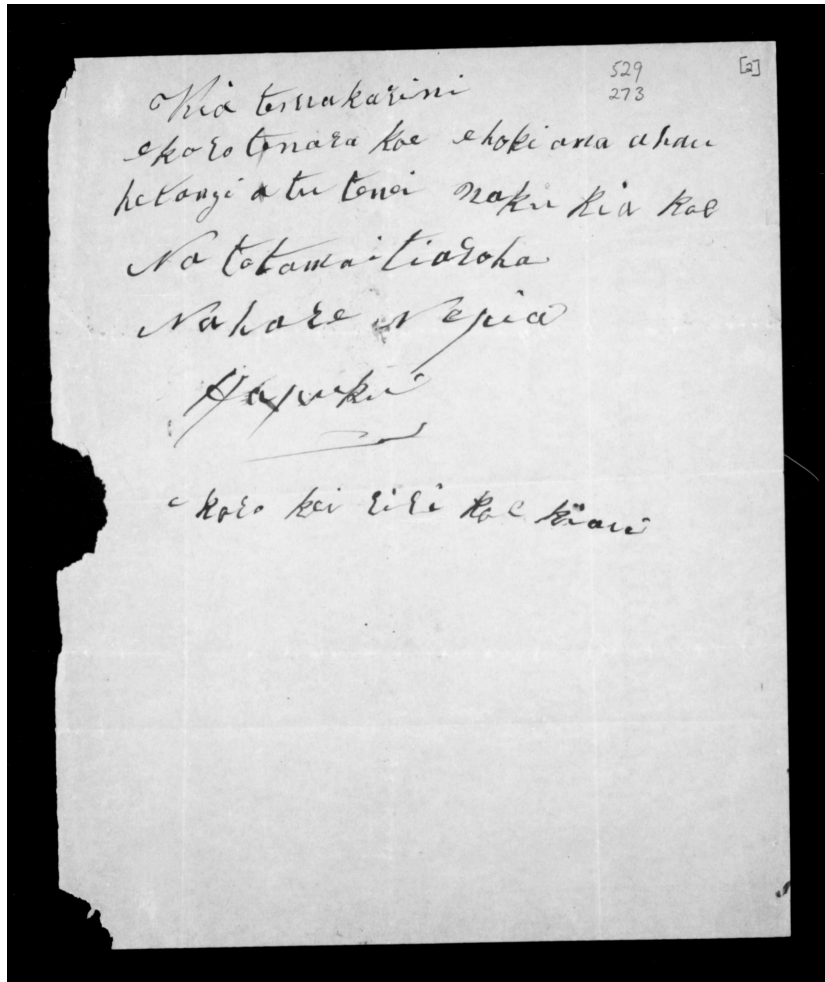 529 [2]
273
Kia temakarini
ekoro tenara koe ehoki ana ahau
hetangi atu tenei naku kia koe
Na totamaitiaroha
Nahare Nepia
Hapuku
e koro kei riri koe kiau